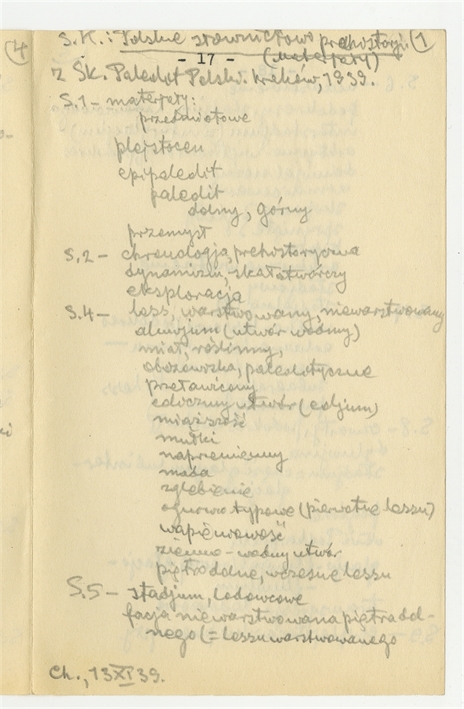 4
S.K.: Polskie słownictwo prehistorji. 1
- 17 - (materjały)
Z ŚK. Paleolit Polski. Kraków, 1939.
S.1 - materjały:
przedmiotowe
plejstocen
epipaleolit
paleolit
dolny, górny
przemysł
S.2 - chronologja, prehistoryczna
dynamizm, skałotwórczy
eksploracja
S.4 - less, warstwowany, niewarstwowany
aluwjum (utwór wodny)
miał, roślinny,
obozowiska, paleolityczne
przetawicony
eoliczny utwór (eoljum)
miąższość
mułki
naprzemienny
mada
zglębienie
typowe (pierwotne lessu)
wapienowość
ziemno - wodny utwór
piętro dolne, wczesne lessu
S.5 - stadjum, lodowcowe
facja niewarstwowana piętra dol-
nego (= lessu warstwowanego
Ch., 13XI39.